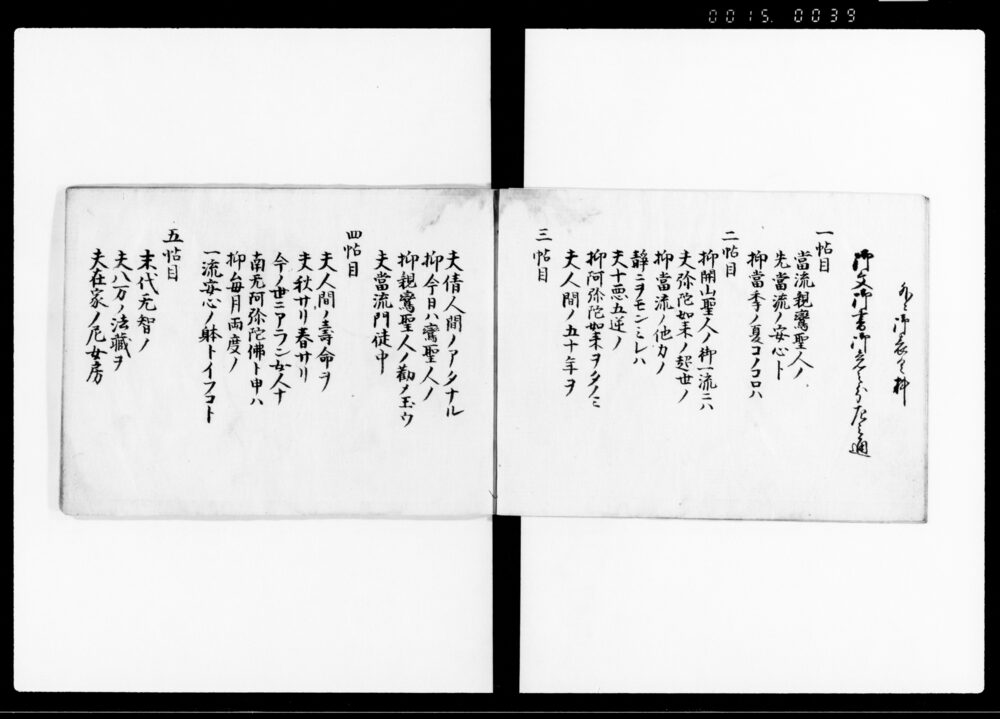 0015. 0039
一帖目
當流親鸞聖人ノ
先當流ノ安心ト
抑當季ノ夏コノコロハ
二帖目
抑開山聖人ノ御一流ニハ
夫弥陀如来ノ超世ノ
抑當流ノ他力ノ
静ニヲモンミレハ
夫十悪五逆ノ
抑阿弥陀如来ヲタノミ
夫人間ノ五十年ヲ
三帖目
夫倩人間ノアタナル
抑今日ハ鸞聖人ノ
抑親鸞聖人ノ勸メ玉ウ
夫當流門徒中
四帖目
夫人間ノ壽命ヲ
夫秋サリ春サリ
今ノ世ニアラン女人ナ
南无阿弥陀佛ト申ハ
抑毎月兩度ノ
一流安心ノ躰トイフコト
五帖目
末代无智ノ
夫八万ノ法藏ヲ
夫在家ノ尼女房